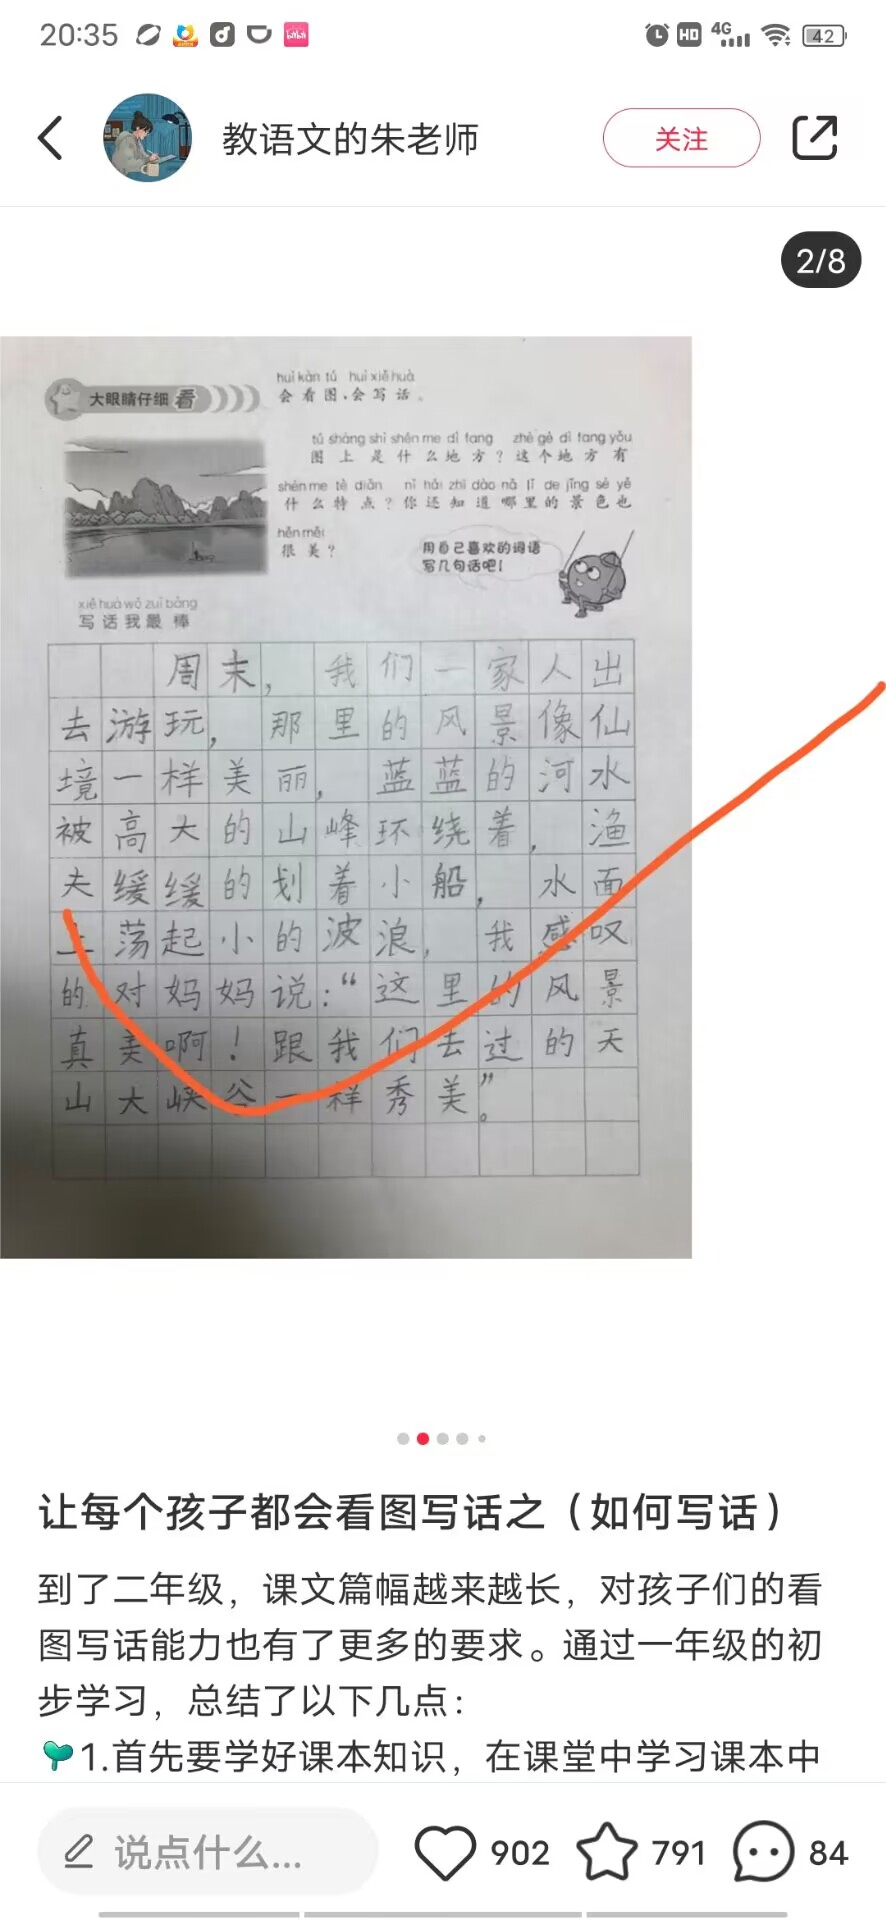 20:35
HD 4G 42
教语文的朱老师
关注
2/8
大眼睛仔细看
huì kàn tú huì xiě huà
会看图，会写话。
tú shàng shì shén me dì fang zhè gè dì fang yǒu
图上是什么地方？这个地方有
shén me tè diǎn nǐ hái zhī dào nǎ lǐ de jǐng sè yě
什么特点？你还知道哪里的景色也
hěn měi
很美？
用自己喜欢的词语
写几句话吧！
xiě huà wǒ zuì bàng
写话我最棒
周末，我们一家人出
去游玩，那里的风景像仙
境一样美丽，蓝蓝的河水
被高大的山峰环绕着，渔
夫缓缓的划着小船，水面
上荡起小的波浪，我感叹
的对妈妈说：“这里的风景
真美啊！跟我们去过的天
山大峡谷一样秀美”。
让每个孩子都会看图写话之（如何写话）
到了二年级，课文篇幅越来越长，对孩子们的看
图写话能力也有了更多的要求。通过一年级的初
步学习，总结了以下几点：
1.首先要学好课本知识，在课堂中学习课本中
说点什么...
902
791
84